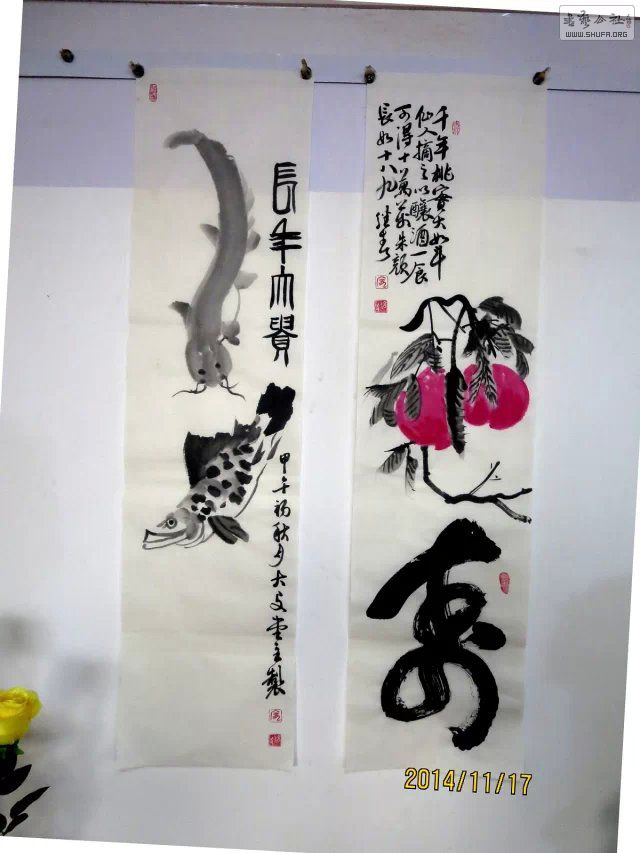 書藝公社
WWW.SHUFA.ORG
千年桃實大如斗
仙人摘之以釀酒一食
可得千萬壽朱顏
長如十八九
壽
長年大貴
甲午初秋月大文堂主製
2014/11/17